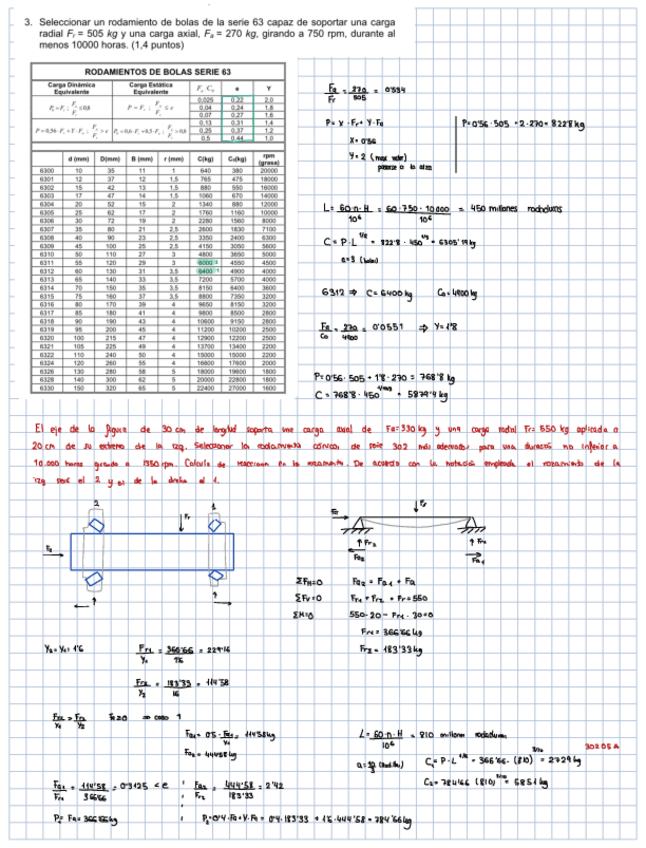 3. Seleccionar un rodamiento de bolas de la serie 63 capaz de soportar una carga
radial Fr = 505 kg y una carga axial, Fa = 270 kg, girando a 750 rpm, durante al
menos 10000 horas. (1,4 puntos)
RODAMIENTOS DE BOLAS SERIE 63
Carga Dinámica Equivalente Carga Estática Equivalente e Y
0,025 0,22 2,0
0,04 0,24 1,8
0,07 0,27 1,6
0,13 0,31 1,4
0,25 0,37 1,2
0,5 0,44 1,0
d (mm) D(mm) B (mm) r (mm) C(kg) C₀(kg) rpm (grasa)
6300 10 35 11 1 640 380 20000
6301 12 37 12 1,5 765 475 18000
6302 15 42 13 1,5 880 550 16000
6303 17 47 14 1,5 1060 670 14000
6304 20 52 15 2 1340 880
6305 25 62 17 2 1760 1160 10000
6306 30 72 19 2 2280 1560 8000
6307 35 80 21 2,5 2600 1830 7100
6308 40 90 23 2,5 3350 2400 6300
6309 45 100 25 2,5 4150 3050 5600
6310 50 110 27 3 4800 3650 5000
6311 55 120 29 3 6000 4550 4500
6312 60 130 31 3,5 6400 4900 4000
6313 65 140 33 3,5 7200 5700 4000
6314 70 150 35 3,5 8150 6400 3600
6315 75 160 37 3,5 8800 7350 3200
6316 80 170 39 4 9650 8150 3200
6317 85 180 41 4 9800 8500 2800
6318 90 190 43 4 10600 9150 2800
6319 95 200 45 4 11200 10200 2500
6320 100 215 47 4 12900 12200 2500
6321 105 225 49 4 13700 13400 2200
6322 110 240 50 4 15000 15000 2200
6324 120 260 55 4 16600 17600 2000
6326 130 280 58 5 18000 19600 1800
6328 140 300 62 5 20000 22800 1800
6330 150 320 65 5 22400 27000 1600
Fa/Fr = 270/505 = 0'534
P = X · Fr + Y · Fa
X = 0'56
Y = 2 (max valor)
P = 0'56 · 505 + 2 · 270 = 822'8 kg
L = 60·n·H/10⁶ = 60·750·10000/10⁶ = 450 millones
C = P · L = 822'8 · 450 = 6305'19 kg
a = 3 (bolas)
6312 ⇒ C = 6400 kg C₀ = 4900 kg
Fa/C₀ = 270/4900 = 0'0551 ⇒ Y = 1'8
P = 0'56 · 505 + 1'8 · 270 = 768'8 kg
C = 768'8 · 450 = 5879'4 kg
El eje de la figura de 30 cm de longitud soporta una carga axial de Fa = 330 kg y una carga radial Fr = 550 kg aplicada a
20 cm de su extremo de la izq. Seleccionar los rodamientos cónicos de serie 302 más adecuados para una duración no inferior a
10.000 horas girando a 1350 rpm. De acuerdo con la notación empleada el rodamiento de la
izq será el 2 y el de la derecha el 1.
2 1
Fr
Fa
Fr
Fa
Fr2
Fa2
Fr1
Fa1
ΣFH=0 Fa2 = Fa1 + Fa
ΣFV=0 Fr1 + Fr2 = Fr = 550
ΣM=0 550·20 - Fr1·30=0
Fr1 = 366'66 kg
Fr2 = 183'33 kg
Y2 = Y1 = 1'6
Fr1/Y1 = 366'66/1'6 = 229'16
Fr2/Y2 = 183'33/1'6 = 114'58
Fr1/Y1 > Fr2/Y2
Fa≥0 ⇒ caso 1
Fa1 = 0'5 · Fr1/Y1 = 114'58 kg
Fa2 = 444'58 kg
L = 60·n·H/10⁶ = 810 millones
C1 = P · L = 366'66 · (810) = 2729 kg
C2 = 784'66 (810) = 5851 kg
30205A
Fa1/Fr1 = 114'58/366'66 = 0'3125 < e ; Fa2/Fr2 = 444'58/183'33 = 2'42
P1 = Fr1 = 366'66 kg ; P2 = 0'4 · Fr + Y · Fa = 0'4 · 183'33 + 1'6 · 444'58 = 784'66 kg